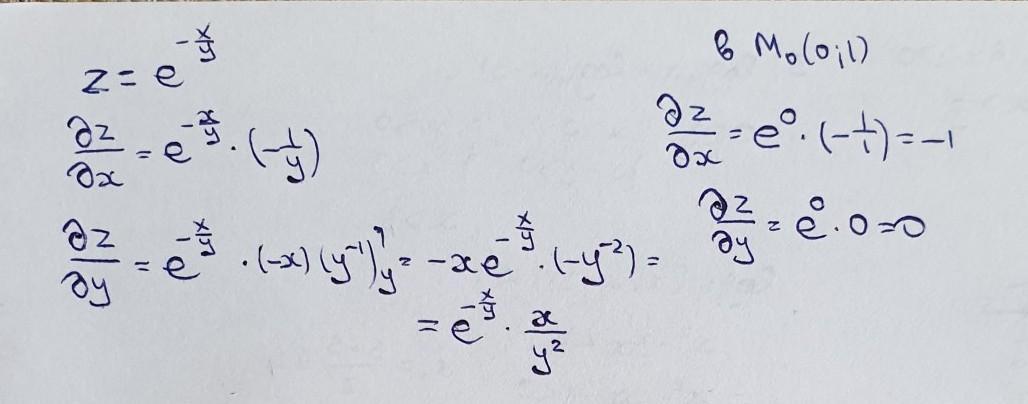 z = e^{-\frac{x}{y}}
\frac{∂z}{∂x} = e^{-\frac{x}{y}} · (-\frac{1}{y})
\frac{∂z}{∂y} = e^{-\frac{x}{y}} · (-x) (y^{-1})'_y = -xe^{-\frac{x}{y}} · (-y^{-2}) =
= e^{-\frac{x}{y}} · \frac{x}{y^2}
в M_0(0;1)
\frac{∂z}{∂x} = e^0 · (-\frac{1}{1}) = -1
\frac{∂z}{∂y} = e^0 · 0 = 0